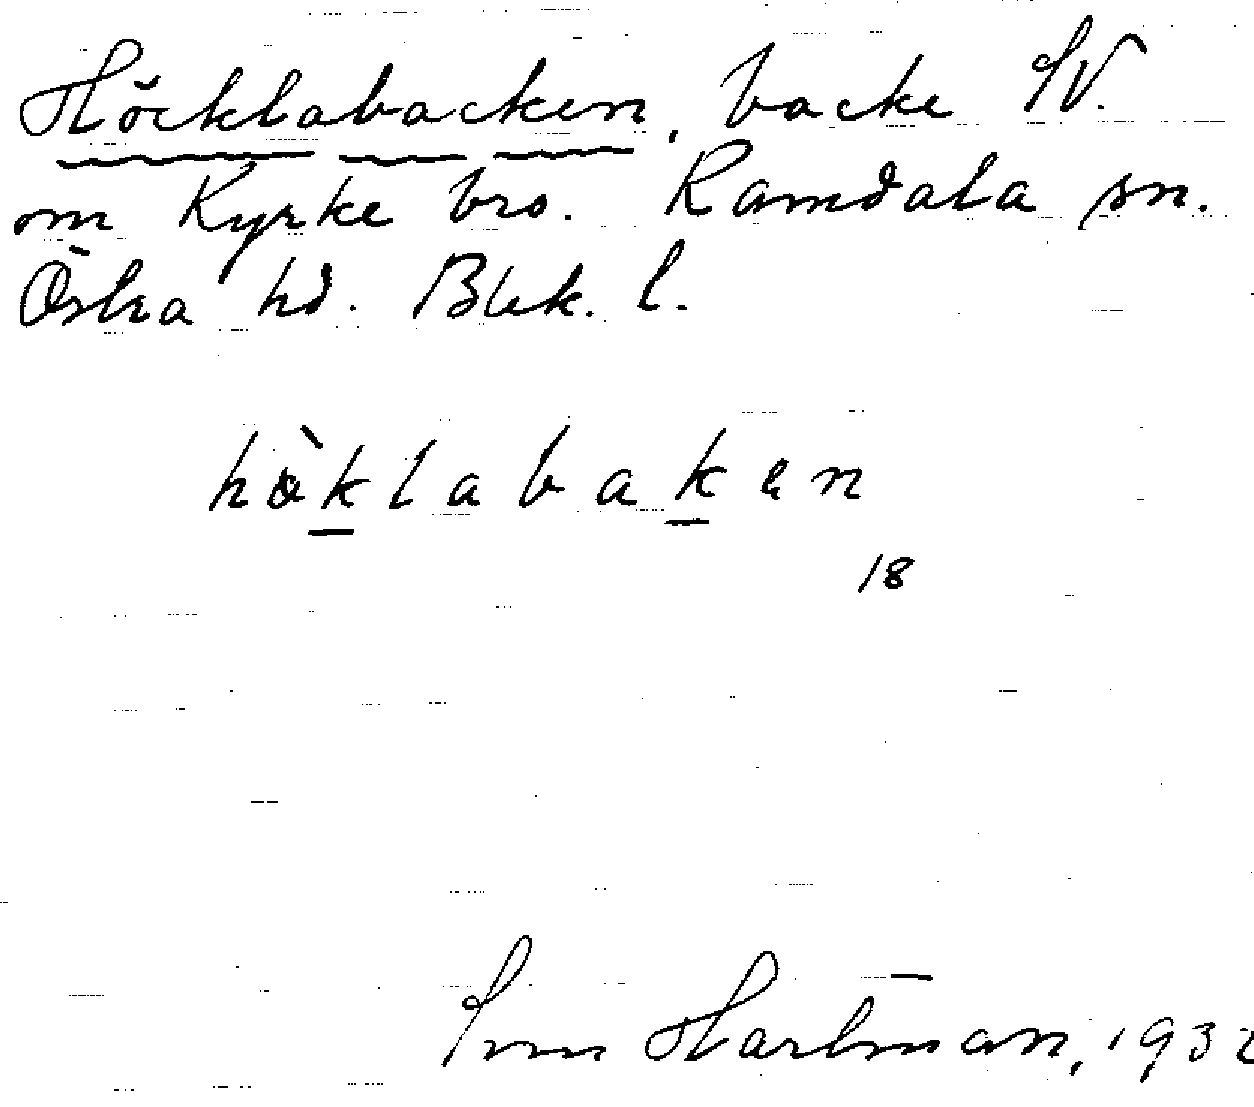 Höcklabacken, backe SV.
om Kyrke bro. Ramdala sn.
Östra hd. Blek. l.
hòklabaken
18
Hartman, 1932